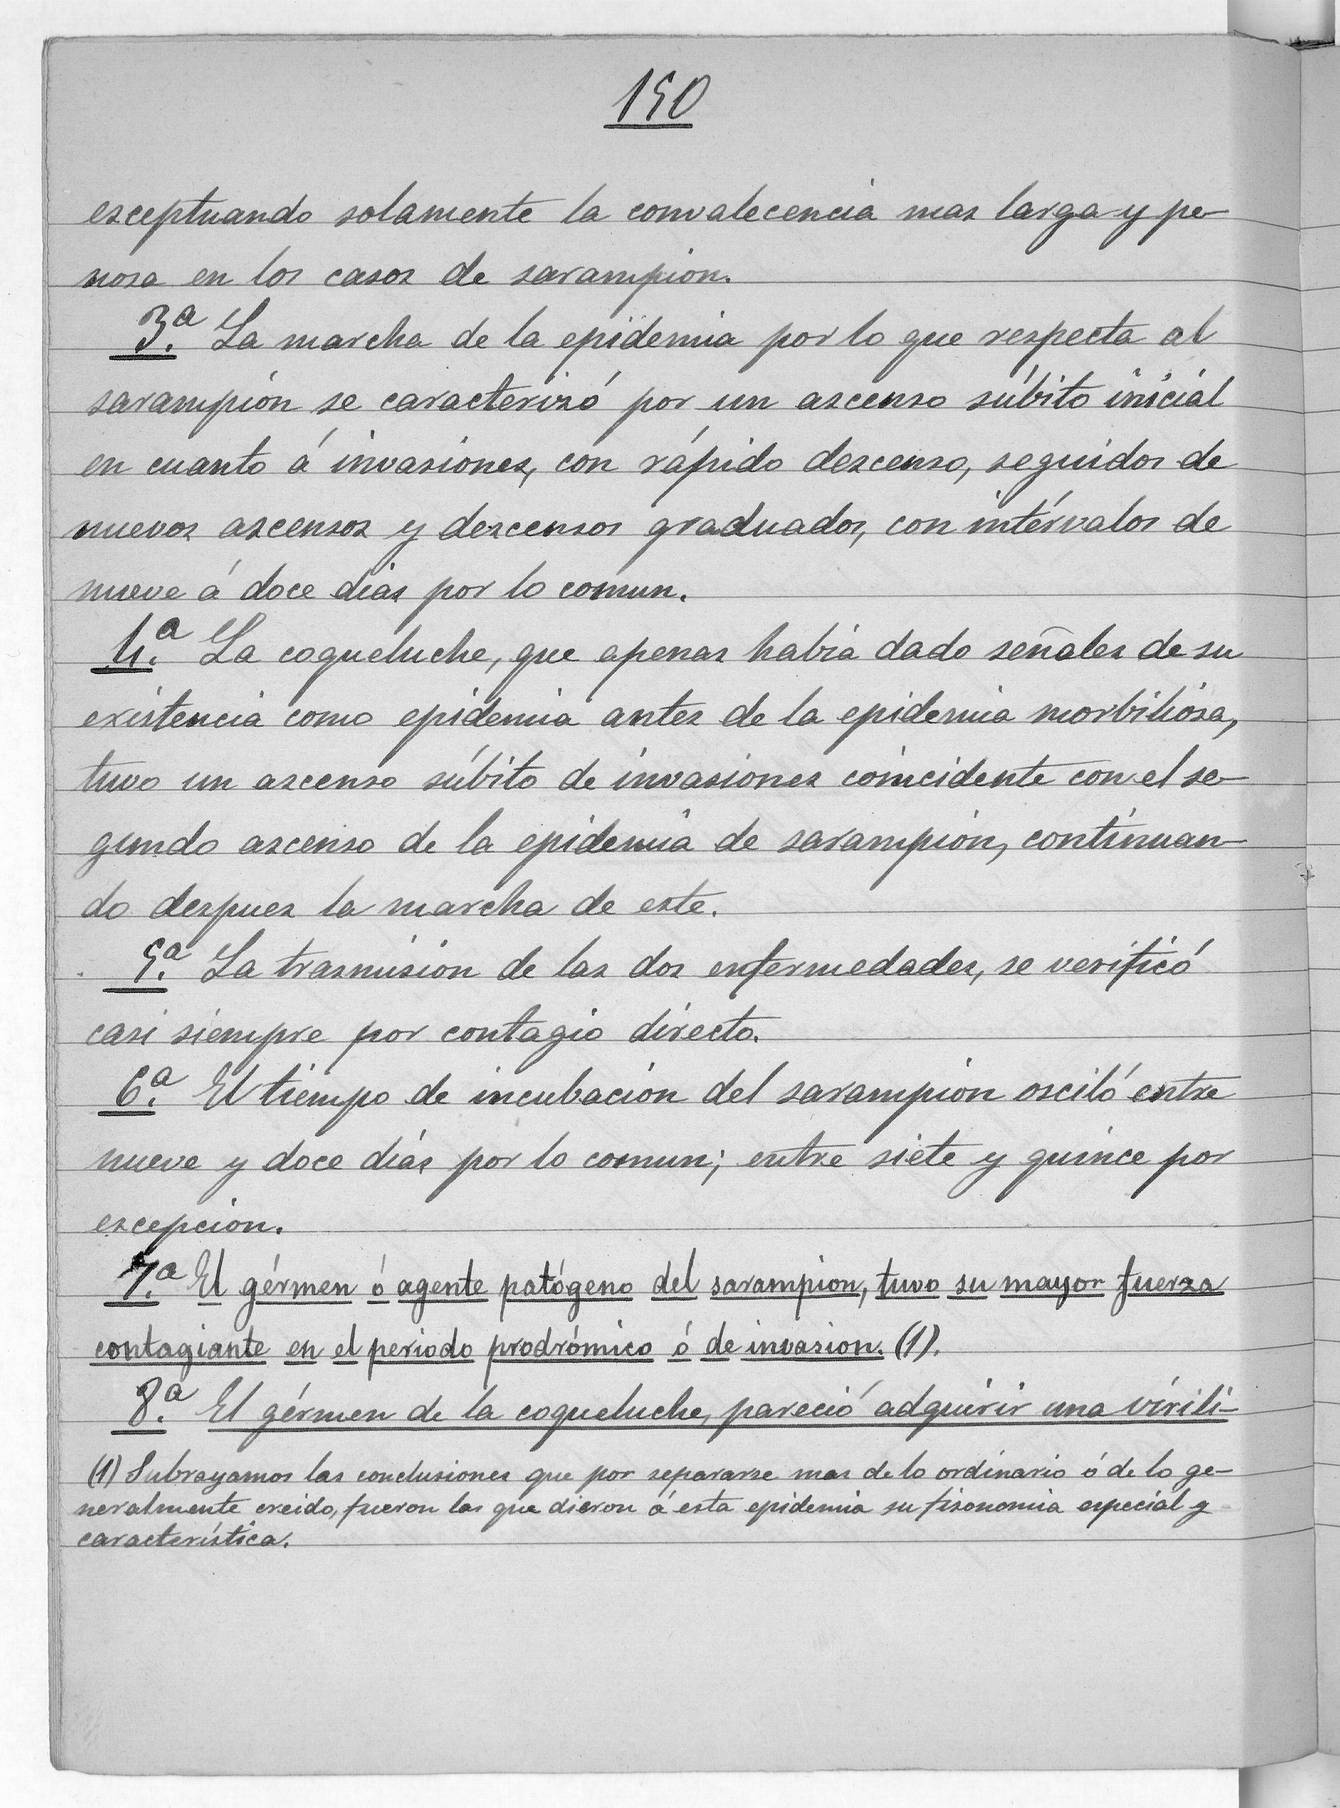 150
esceptuando solamente la convalecencia mas larga y pe-
nosa en los casos de sarampion.
3.ª La marcha de la epidemia por lo que respecta al
sarampión se caracterizó por un ascenso súbito inicial
en cuanto á invasiones, con rápido descenso, seguidos de
nuevos ascensos y descensos graduados, con intérvalos de
nueve á doce dias por lo comun.
4.ª La coqueluche, que apenas habia dado señales de su
existencia como epidemia antes de la epidemia morbiliosa,
tuvo un ascenso súbito de invasiones coincidente con el se-
gundo ascenso de la epidemia de sarampión, continuan-
do despues la marcha de este.
5.ª La trasmision de las dos enfermedades, se verificó
casi siempre por contagio directo.
6.ª El tiempo de incubacion del sarampión osciló entre
nueve y doce dias por lo comun; entre siete y quince por
escepcion.
7.ª El gérmen ó agente patógeno del sarampion, tuvo su mayor fuerza
contagiante en el periodo prodrómico ó de invasion. (1).
8.ª El gérmen de la coqueluche, pareció adquirir una virili-
(1) Subrayamos las conclusiones que por separarse mas de lo ordinario ó de lo ge-
neralmente creido, fueron las que dieron á esta epidemia su fisonomia especial y
característica.